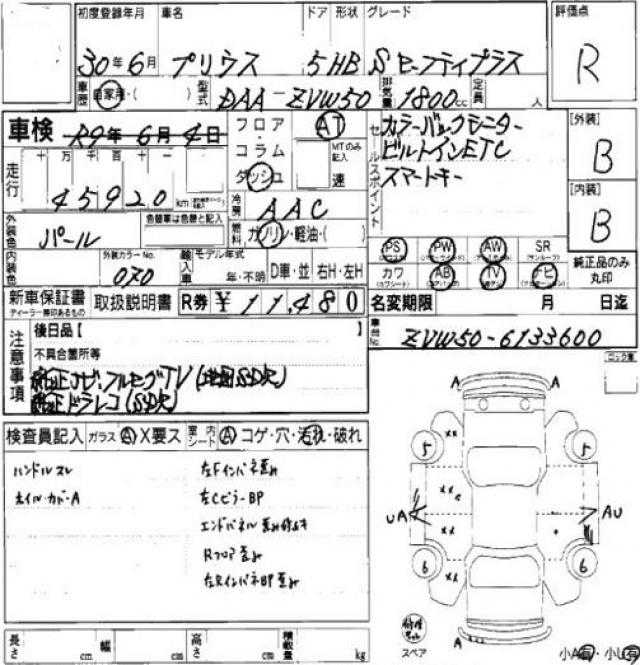 初度登録年月 車名 ドア 形状 グレード 評価点
30年6月 プリウス 5HB Sセーフティプラス R
車歴 自家用・( ) 型式 DAA-ZVW50 排気量 1800cc 定員 人
車検 R9年6月4日
フロア・コラム ダッシュ AT MTのみ記入 速
セールスポイント
カラーバックモニター
ビルトインETC
スマートキー
[外装] B
[内装] B
走行 十万千百十一
45920 km
冷房 AAC
燃料 ガソリン・軽油・( )
外装色 パール 色替車は色替と記入
内装色 外装カラーNo. 070 輸入車 モデル年式 年・不明 D車・並 右H・左H
PS PW AW SR(サンルーフ)
カワ(カワシート) AB TV ナビ
純正品のみ丸印
新車保証書 取扱説明書 R券 ¥11,480
ディーラー捺印あるもの
名変期限 月 日迄
車台No. ZVW50-6133600
注意事項
後日品【
不具合箇所等
純正ナビ・フルセグTV(地図SD欠)
純正ドラレコ(SD欠)
ロック室
検査員記入 ガラス A X要ス 室内シート A コゲ・穴・汚れ・破れ
ハンドルスレ
左Fインパネ歪み
左CピラーBP
エンドパネル歪み修まき
Rフロア歪み
左RインパネBP歪み
A A
5 5
UA AU
6 6
A
スペア
小A有・小U有
長さ cm 幅 cm 高さ cm 積載量 kg